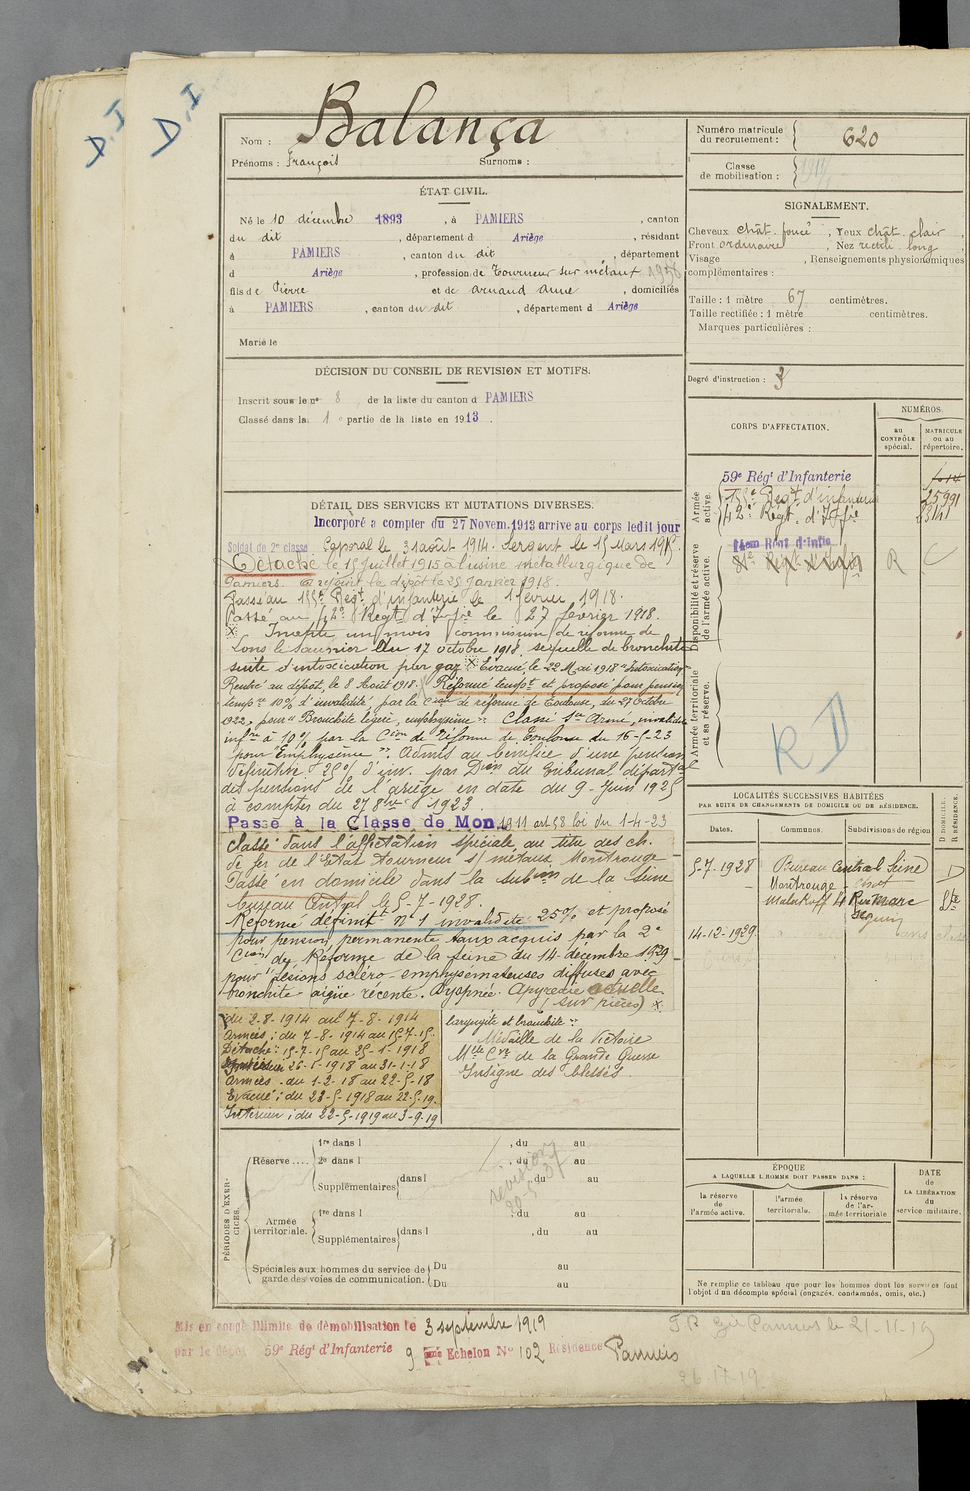 D, I
D, I
Nom : Balança
Prénoms : François Surnoms :
Numéro matricule du recrutement : 620
Classe de mobilisation :
ÉTAT CIVIL.
Né le 10 décembre 1893, à PAMIERS, canton
du dit, département d Ariège, résidant
à PAMIERS, canton du dit, département
d Ariège, profession de tourneur sur métaux
fils de Pierre et de Arnaud Anne, domiciliés
à PAMIERS, canton du dit, département d Ariège
Marié le
SIGNALEMENT.
Cheveux chât. foncé, Yeux chât. clair,
Front ordinaire, Nez rectil. long,
Visage , Renseignements physionomiques
complémentaires :
Taille : 1 mètre 67 centimètres.
Taille rectifiée : 1 mètre centimètres.
Marques particulières :
Degré d'instruction : 3
DÉCISION DU CONSEIL DE REVISION ET MOTIFS.
Inscrit sous le n° 8 de la liste du canton d PAMIERS
Classé dans la 1e partie de la liste en 1913.
CORPS D'AFFECTATION.
NUMÉROS
au CONTRÔLE spécial.
MATRICULE ou au répertoire.
Armée active.
59e Régt d'Infanterie
155e Régt d'infanterie 25991
42e Régt. d'Inf.ie
Disponibilité et réserve de l'armée active.
14em Regt d'Infie R C
Armée territoriale et sa réserve.
R D
DÉTAIL DES SERVICES ET MUTATIONS DIVERSES.
Incorporé a compter du 27 Novem. 1913 arrive au corps ledit jour
Soldat de 2e classe Caporal le 31 août 1914. Sergent le 15 Mars 1915.
Détaché le 15 juillet 1915 à l'usine métallurgique de
Pamiers. A rejoint le dépôt le 25 Janvier 1918.
Passé au 155e Régt d'infanterie le 1 février 1918.
Passé au 42e Régt d'Inf.ie le 27 février 1918.
Inapte un mois commission de réforme de
Lons le Saunier du 17 octobre 1918, sequelle de bronchite
suite d'intoxication par gaz. Evacué le 22 Mai 1918 "Intoxication"
Rentré au dépôt, le 8 Août 1918. Réformé tempt et proposé pour pension
temp.re 10% d'invalidité, par la Cion de réforme de Toulouse, du 27 octobre
1922, pour "Bronchite légère, emphysème". Classé Sce Armé, invalidité
infre à 10% par la Cion de Réforme de Toulouse du 16-5-23
pour "Emphysème". Admis au bénéfice d'une pension
définitive 25% d'inv. par Dion du Tribunal départal
des pensions de l'Ariège en date du 9 Juin 1925
à compter du 27 8bre 1923.
Passé à la Classe de Mon. 1911 art 58 loi du 1-4-23
Classé dans l'affectation spéciale au titre des ch.
de fer de l'Etat tourneur s/ métaux Montrouge
Passé en domicile dans la subon de la Seine
bureau Central le 5-7-1928.
Réformé définitt n° 1 invalidité 25% et proposé
pour pension permanente taux acquis par la 2e
Cion de Réforme de la Seine du 14 décembre 1929
pour "lésions scléro-emphysémateuses diffuses avec
bronchite aigüe récente. Dyspnée. Apyrexie actuelle
(sur pièces)
du 2-8-1914 au 7-8-1914
Armées : du 7-8-1914 au 15-7-15.
Détaché : 15-7-15 au 25-1-1918
Intérieur 26-1-1918 au 31-1-18
Armées. du 1-2-18 au 22-5-18
Evacué : du 23-5-1918 au 22-5-19.
Intérieur : du 22-5-1919 au 3-9-19
laryngite et bronchite".
Médaille de la Victoire
Mlle Cve de la Grande Guerre
Insigne des blessés.
LOCALITÉS SUCCESSIVES HABITÉES
PAR SUITE DE CHANGEMENTS DE DOMICILE OU DE RÉSIDENCE.
Dates. Communes. Subdivisions de région
D DOMICILE. R RÉSIDENCE.
5-7-1928 Bureau Central Seine D
Montrouge
Malakoff 4 Rue Marc Seguin
14-12-1929
PÉRIODES D'EXERCICES.
Réserve.... 1re dans l , du au
2e dans l , du au
Supplémentaires dans l , du au
Armée territoriale. 1re dans l , du au
Supplémentaires dans l , du au
Spéciales aux hommes du service de garde des voies de communication. Du au
Du au
revision
ÉPOQUE
A LAQUELLE L'HOMME DOIT PASSER DANS :
la réserve de l'armée active.
l'armée territoriale.
la réserve de l'armée territoriale
DATE DE LA LIBÉRATION du service militaire.
Ne remplir ce tableau que pour les hommes dont les services font
l'objet d'un décompte spécial (engagés, condamnés, omis, etc.)
Mis en congé illimité de démobilisation le 3 septembre 1919
par le dépôt 59e Régt d'Infanterie 9 ème Echelon N° 102 Résidence Pamiers
Pamiers le 21-11-19